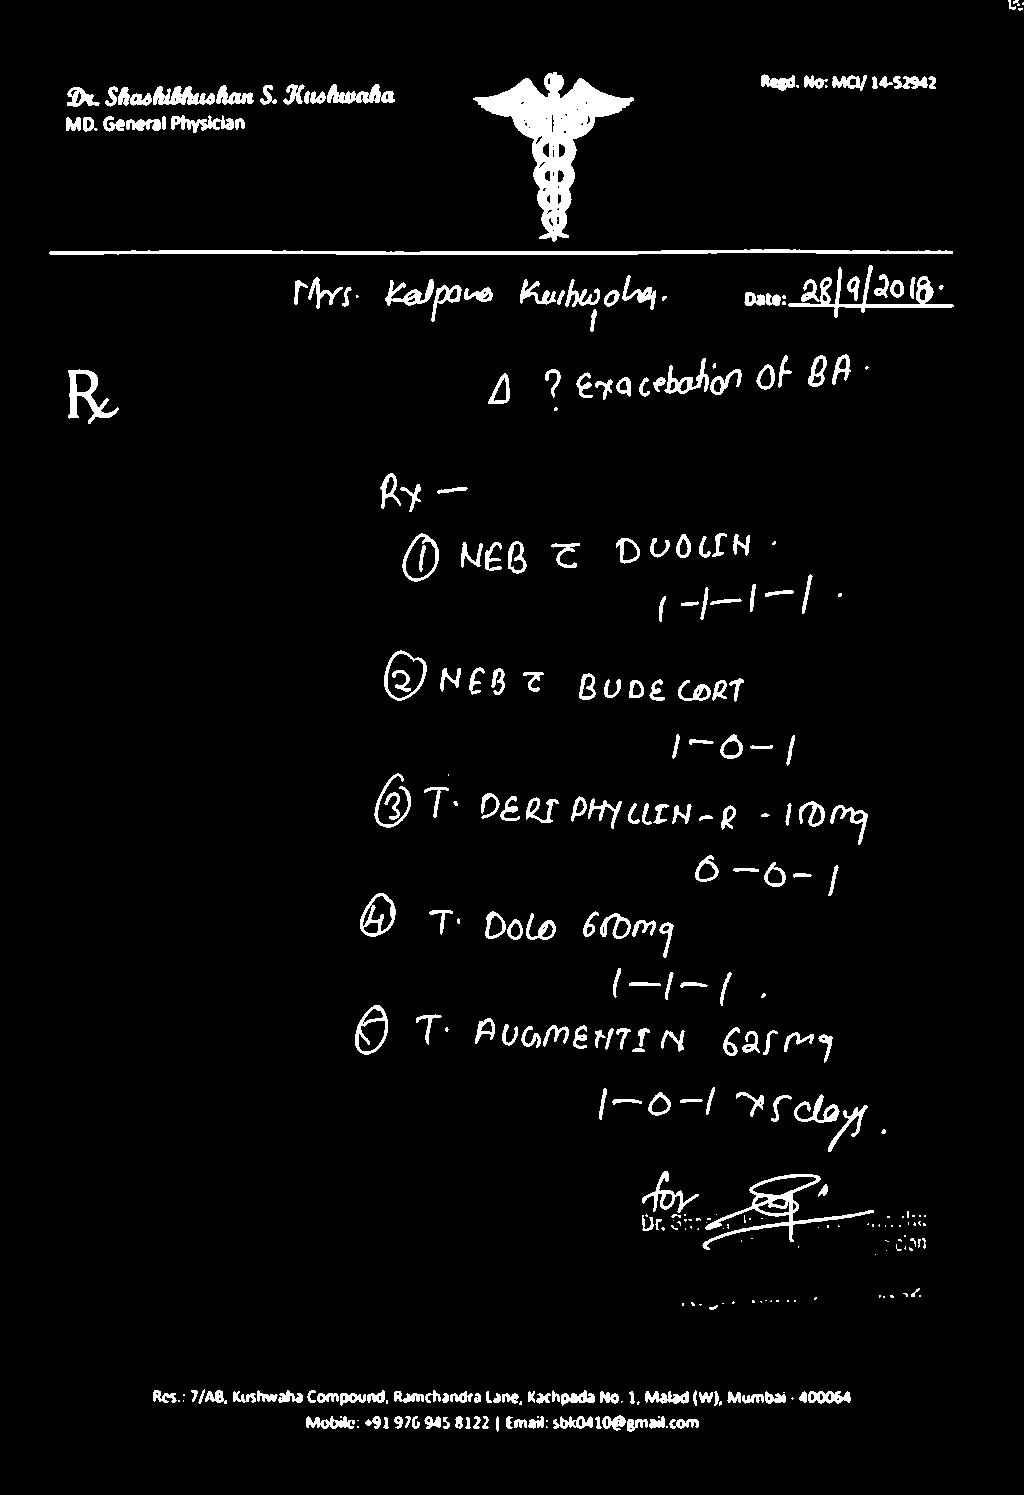 Dr. Shashibhushan S. Kushwaha
MD. General Physician
Regd. No: MCI/ 14-52942
Mrs. Kalpana Kushwaha.
Date: 28/9/2018.
Rx
Δ ? Exacebation of BA.
Rx —
① NEB c̄ DUOLIN.
1-1-1-1.
② NEB c̄ BUDECORT
1-0-1
③ T. DERIPHYLLIN-R - 150mg
0-0-1
④ T. DOLO 650mg
1-1-1.
⑤ T. AUGMENTIN 625mg
1-0-1 x5days.
for
Dr.
Res.: 7/AB, Kushwaha Compound, Ramchandra Lane, Kachpada No. 1, Malad (W), Mumbai - 400064
Mobile: +91 976 945 8122 | Email: sbk0410@gmail.com